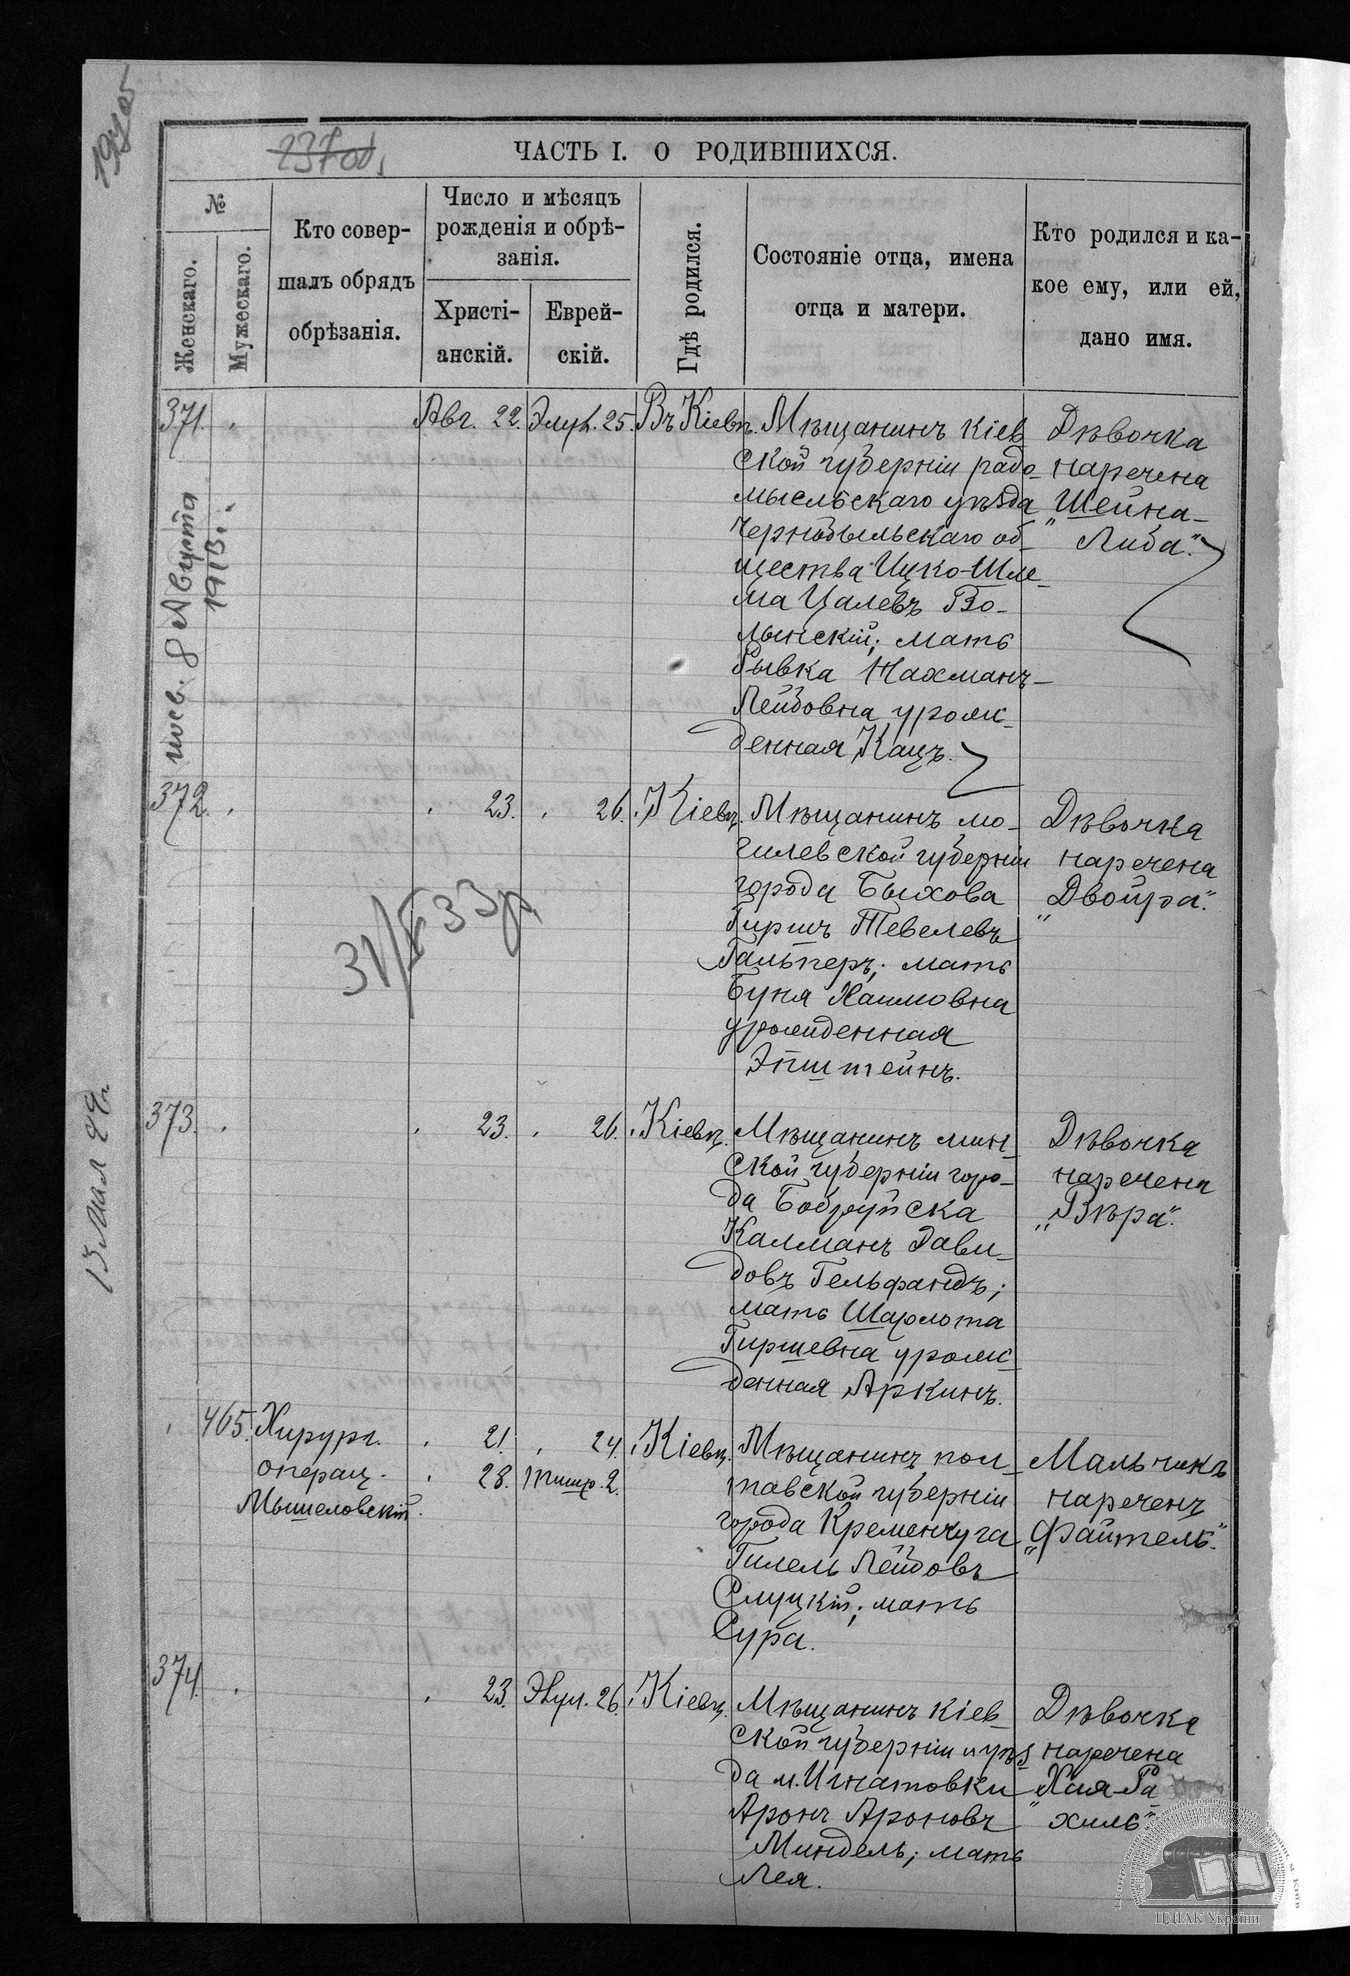 1905
237 об.
ЧАСТЬ I. О РОДИВШИХСЯ.
№
Женскаго.
Мужескаго.
Кто совер-
шалъ обрядъ
обрѣзанія.
Число и мѣсяцъ
рожденія и обрѣ-
занія.
Христі-
анскій.
Еврей-
скій.
Гдѣ родился.
Состояніе отца, имена
отца и матери.
Кто родился и ка-
кое ему, или ей,
дано имя.
371.
Авг. 22.
Элул. 25.
Въ Кіевѣ.
Мѣщанинъ кіев
ской губерніи радо-
мысльскаго уѣзда
чернобыльскаго об-
щества Ицко-Шле-
ма Цалевъ Во-
лынскій; мать
Рывка Нахманъ-
Лейбовна урож-
денная Кацъ.
Дѣвочка
наречена
"Шейна-
Либа".
8 Августа
1913.
372.
23.
26.
Кіевѣ.
Мѣщанинъ мо-
гилевской губерніи
города Быхова
Гиршъ Тевелевъ
Гальперъ; мать
Буня Хаимовна
урожденная
Эпштейнъ.
Дѣвочка
наречена
"Двойра".
31/V 33 р.
13 Мая 29 г.
373.
23.
26.
Кіевѣ.
Мѣщанинъ мин-
ской губерніи горо-
да Бобруйска
Калманъ Дави-
довъ Гельфандъ;
мать Шарлота
Гиршевна урож-
денная Аркинъ.
Дѣвочка
наречена
"Вѣра".
465.
Хирург.
операц.
Мышеловскій.
21.
28.
24.
Тишр. 2.
Кіевѣ.
Мѣщанинъ пол-
тавской губерніи
города Кременчуга
Гилель Лейбовъ
Слуцкій; мать
Сура.
Мальчикъ
нареченъ
"Файтель".
374.
23.
Элул. 26.
Кіевѣ.
Мѣщанинъ кіев-
ской губерніи и уѣз
да м. Игнатовки
Аронъ Ароновъ
Миндель; мать
Лея.
Дѣвочка
наречена
"Хая-Ра
хиль"
ЦДІАК України